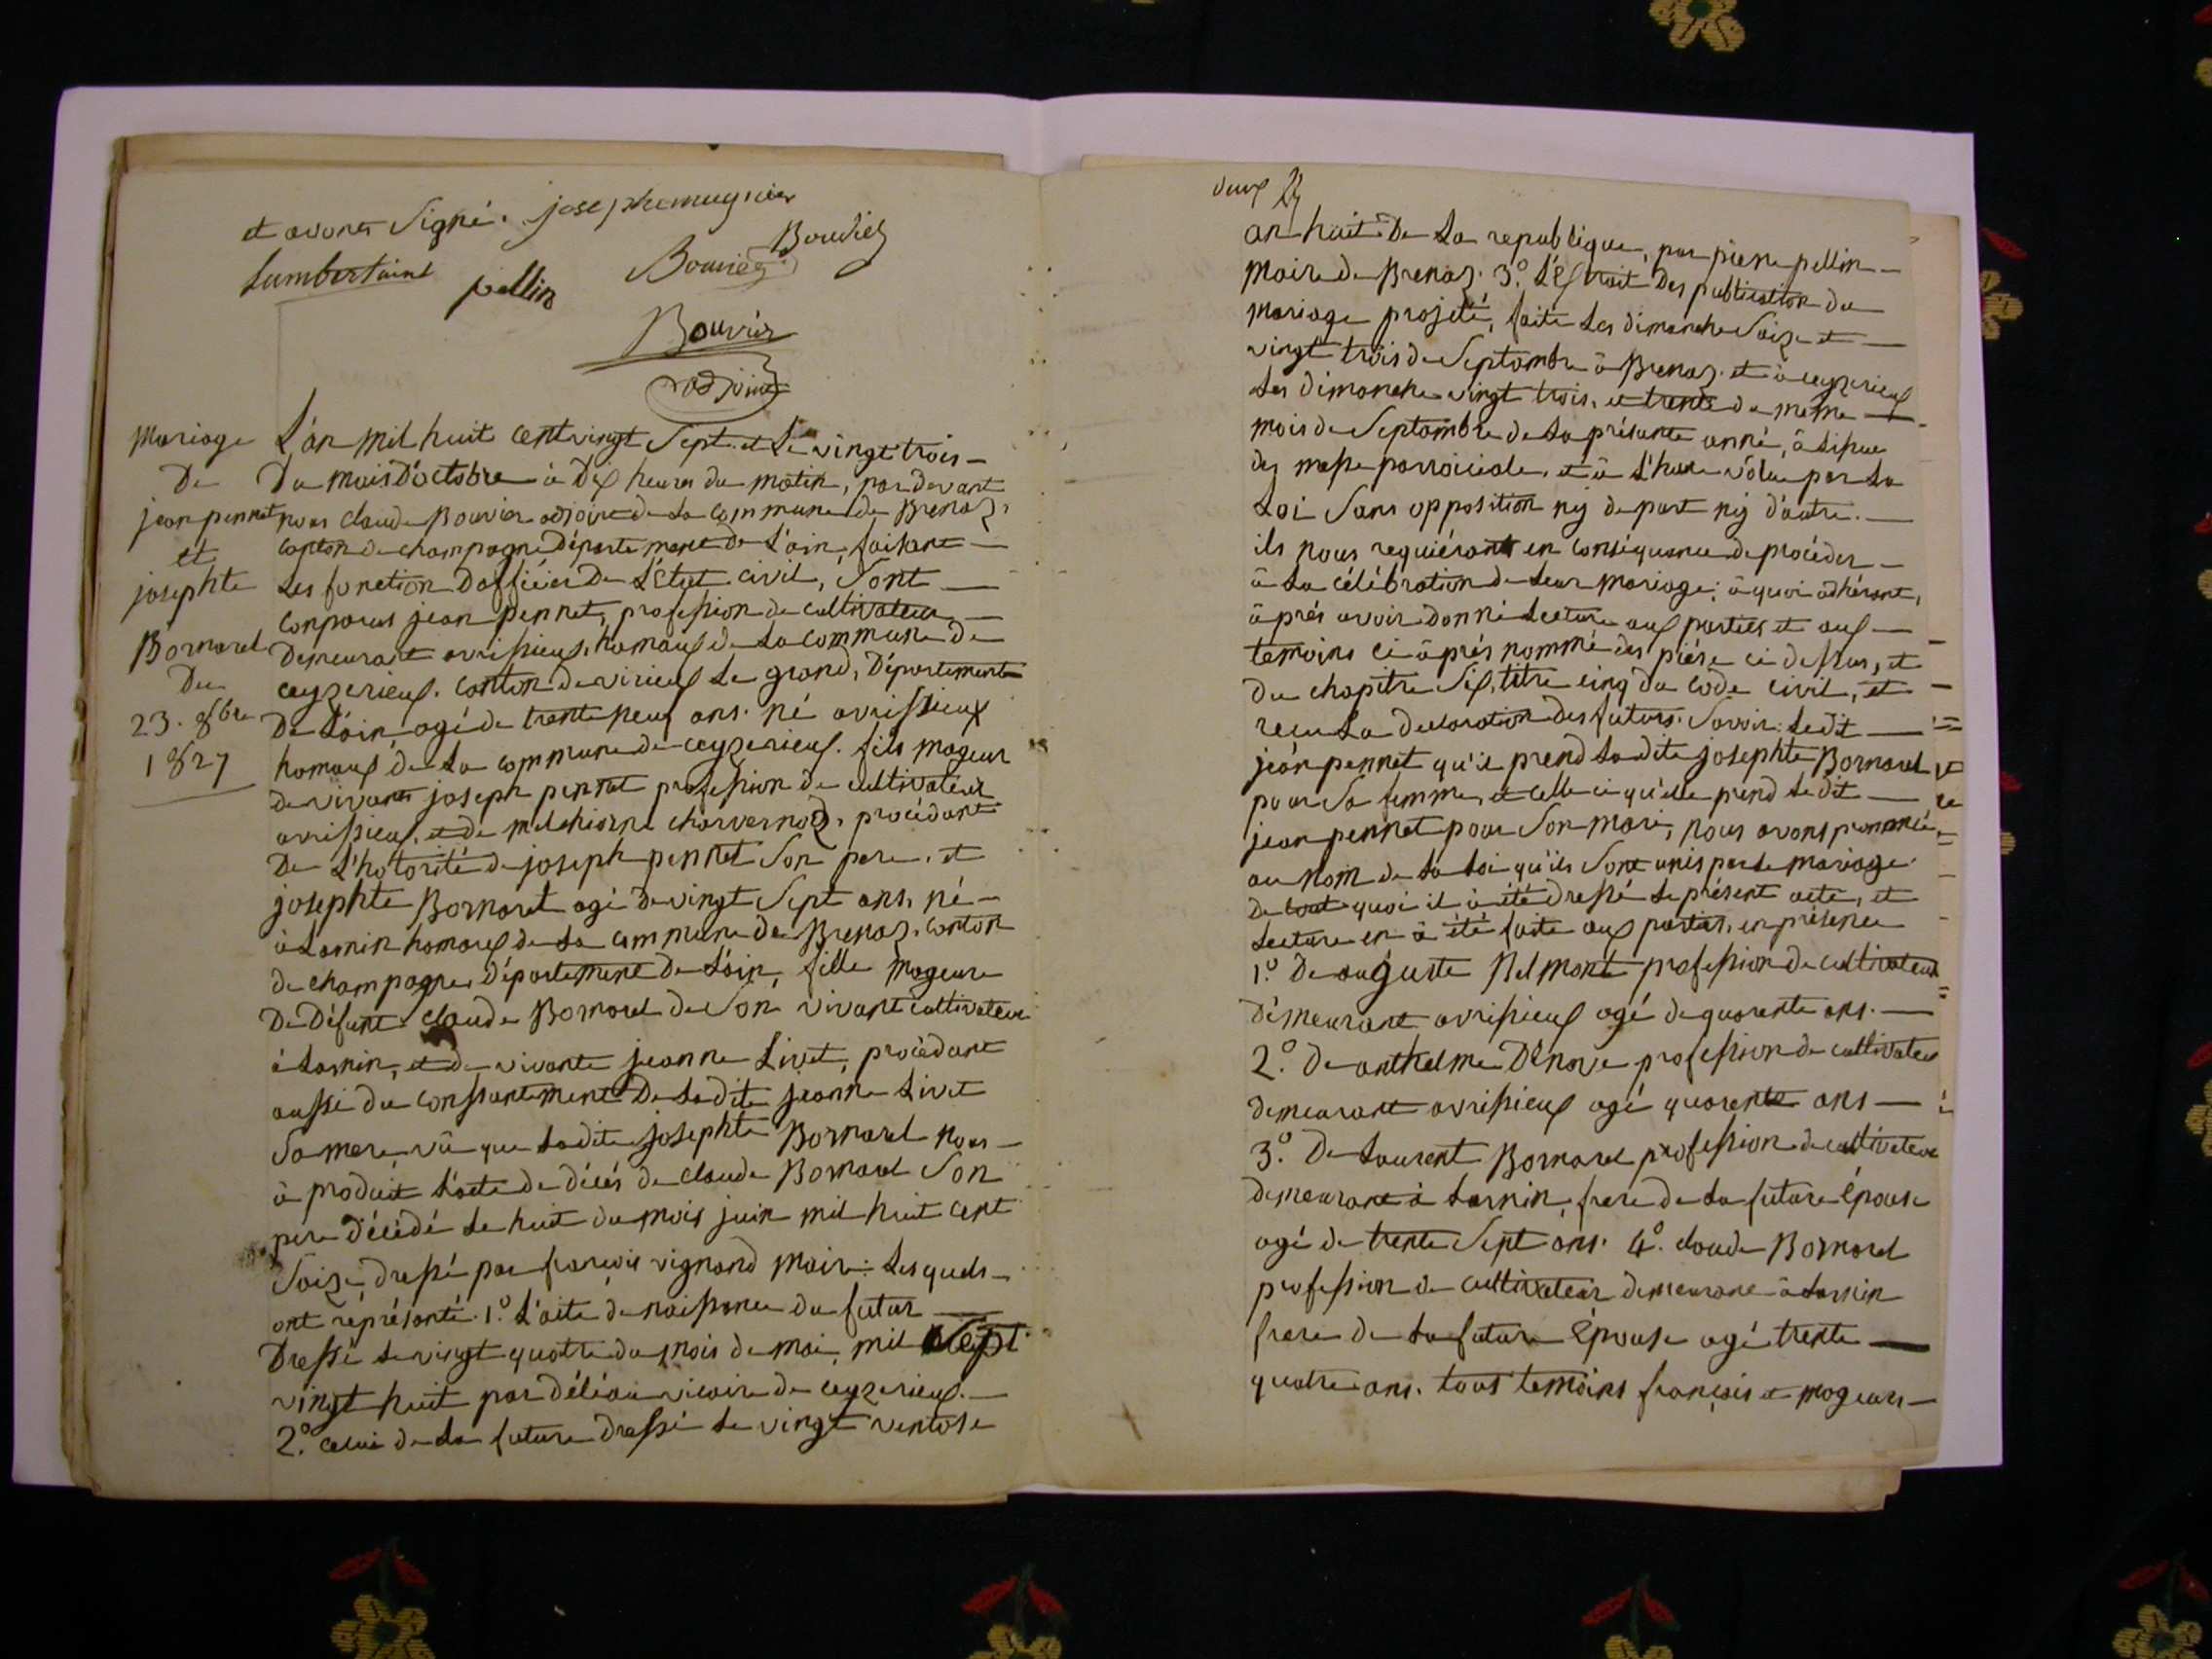 et avons Signé. josephemugnier
Bouvier
Lumbert pellin Bouvier
Bouvier
adjoint
Mariage
De
jean pennet
et
josephte
Bornarel
Du
23. 8bre
1827
L'an mil huit cent vingt Sept. et Le vingt trois
Du mois D'octobre à Dix heures du matin, par devant
nous claude Bouvier adjoint de La commune de Brenaz,
canton de champagne Département de L'ain, faisant
Les fonction D'officier De L'état civil, Sont
conparus jean pennet, profession de cultivateur,
Demeurant avrissieux, hamaux de La commune de
ceyzerieux. canton de virieux Le grand, Départemente
De L'ain, agé de trente neuf ans. né avrissieux
hamaux de La commune de ceyzerieux. fils mageur
de vivants joseph pennet profession de cultivateur
avrissieux, et de melchiorne charvernod, procédant
De L'hotorité de joseph pennet Son pere, et
josephte Bornarel agé de vingt Sept ans, né
à Larnin hamaux de La commune de Brenaz, canton
de champagne, Département de L'ain, fille mageure
De Défunt claude Bornarel de Son vivant cultivateur
à Larnin, et de vivante jeanne Livet, procédant
aussi du conssantement De Ladite jeanne Livet
Sa mere, vû que Ladite josephte Bornarel nous
à produit L'acte de décés de claude Bornarel Son
pere décédé Le huit du mois juin mil huit cent
Saize, dressé par françois vignand maire. Lesquels
ont réprésanté. 1.º L'acte de naissance du futur
Dressé Le vingt quattre du mois de mai, mil Sept
vingt huit par vicaire de ceyzerieux.
2.º celui de La future dressé Le vingt ventose
deux
an huit De La republique, par pierre pellin
Maire de Brenaz. 3.º L'extrait Des publication du
mariage projeté, faite Les dimanche Saize et
vingt trois de Septambre à Brenaz. et à ceyzerieux
Les dimanche vingt trois, et trente du mame
mois de Septambre de La présante anné, à Lissue
des masse parroiciale, et à L'heure vôlue par La
Loi Sans opposition nÿ de part nÿ d'autre.
ils nous requiérant en conséquance de procéder
à La célébration de Leur mariage; à quoi adhérant,
àprés avoir donné Lecture aux parties et aux
temoins ci àprés nommé des piése ci dessus, et
du chapitre Six, titre cinq du code civil, et
recu La declaration des futurs. Savoir: Ledit
jean pennet qu'il prend Ladite josephte Bornarel
pour Sa femme, et celle ci qu'elle prend Ledit
jean pennet pour Son mari, nous avons prononcé,
au nom de La Loi qu'ils Sont unis par Le mariage.
De tout quoi il à été dressé Le présent acte, et
Lecture en à été faite aux parties, en présence
1.º De auguste Melmont profession de cultivateur
démeurant avrissieux agé de quarente ans.
2.º De anthelme Dénove profession de cultivateur
demeurant avrissieux agé quarente ans
3.º De Laurent Bornarel profession de cultivateur
demeurant à Larnin, frere de La future Épouse
agé de trente Sept ans. 4.º claude Bornarel
profession de cultivateur demeurant à Larnin
frere de La future Épouse agé trente
quatre ans. tous temoins français et mageurs